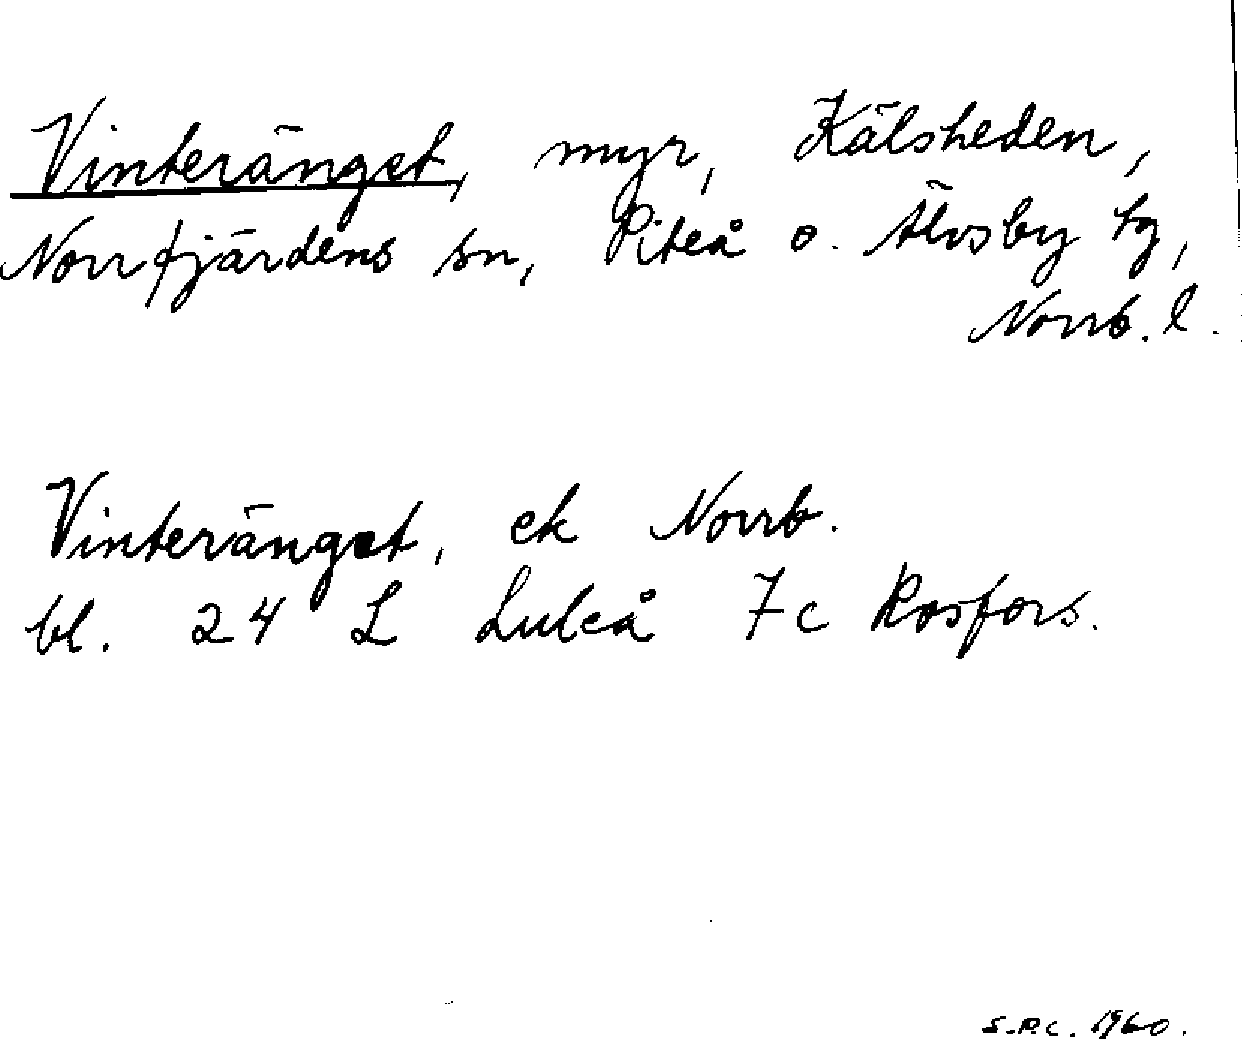 Vinteränget, myr, Kälsheden,
Norrfjärdens sn, Piteå o. Älvsby tg,
Norrb. l.
Vinteränget, ek Norrb.
bl. 24 L Luleå 7c Rosfors.
S.R.C. 1960.